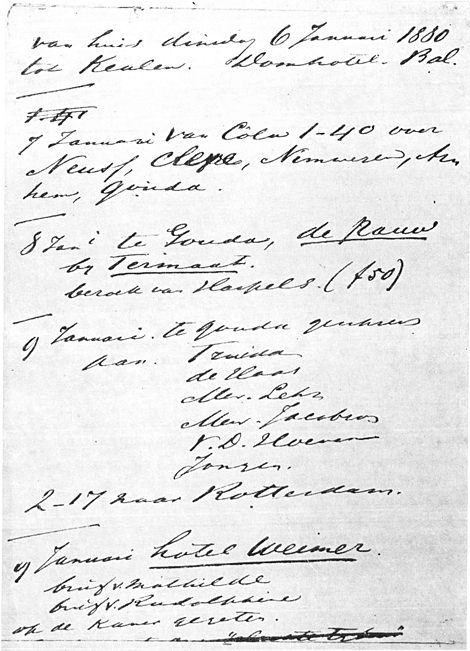 van huis dinsdag 6 Januari 1880
tot Keulen. Domhotel. Bal.
7 Januari van Cöln 1-40 over
Neuss, Cleve, Nimwegen, Arn
hem, Gouda.
8 Jan te Gouda, de Rauw
by Termaat.
bezoek van Haspels. (f50)
9 Januari. te Gouda
aan. Truida
de Haas
Mev. Lehr
Mev. Jacobius
V. D. Hoeven
Jonger.
2-17 naar Rotterdam.
9 Januari hotel Weimer.
brief v. Mathilde
brief v. Rudolphine
op de Kamer gegeten.